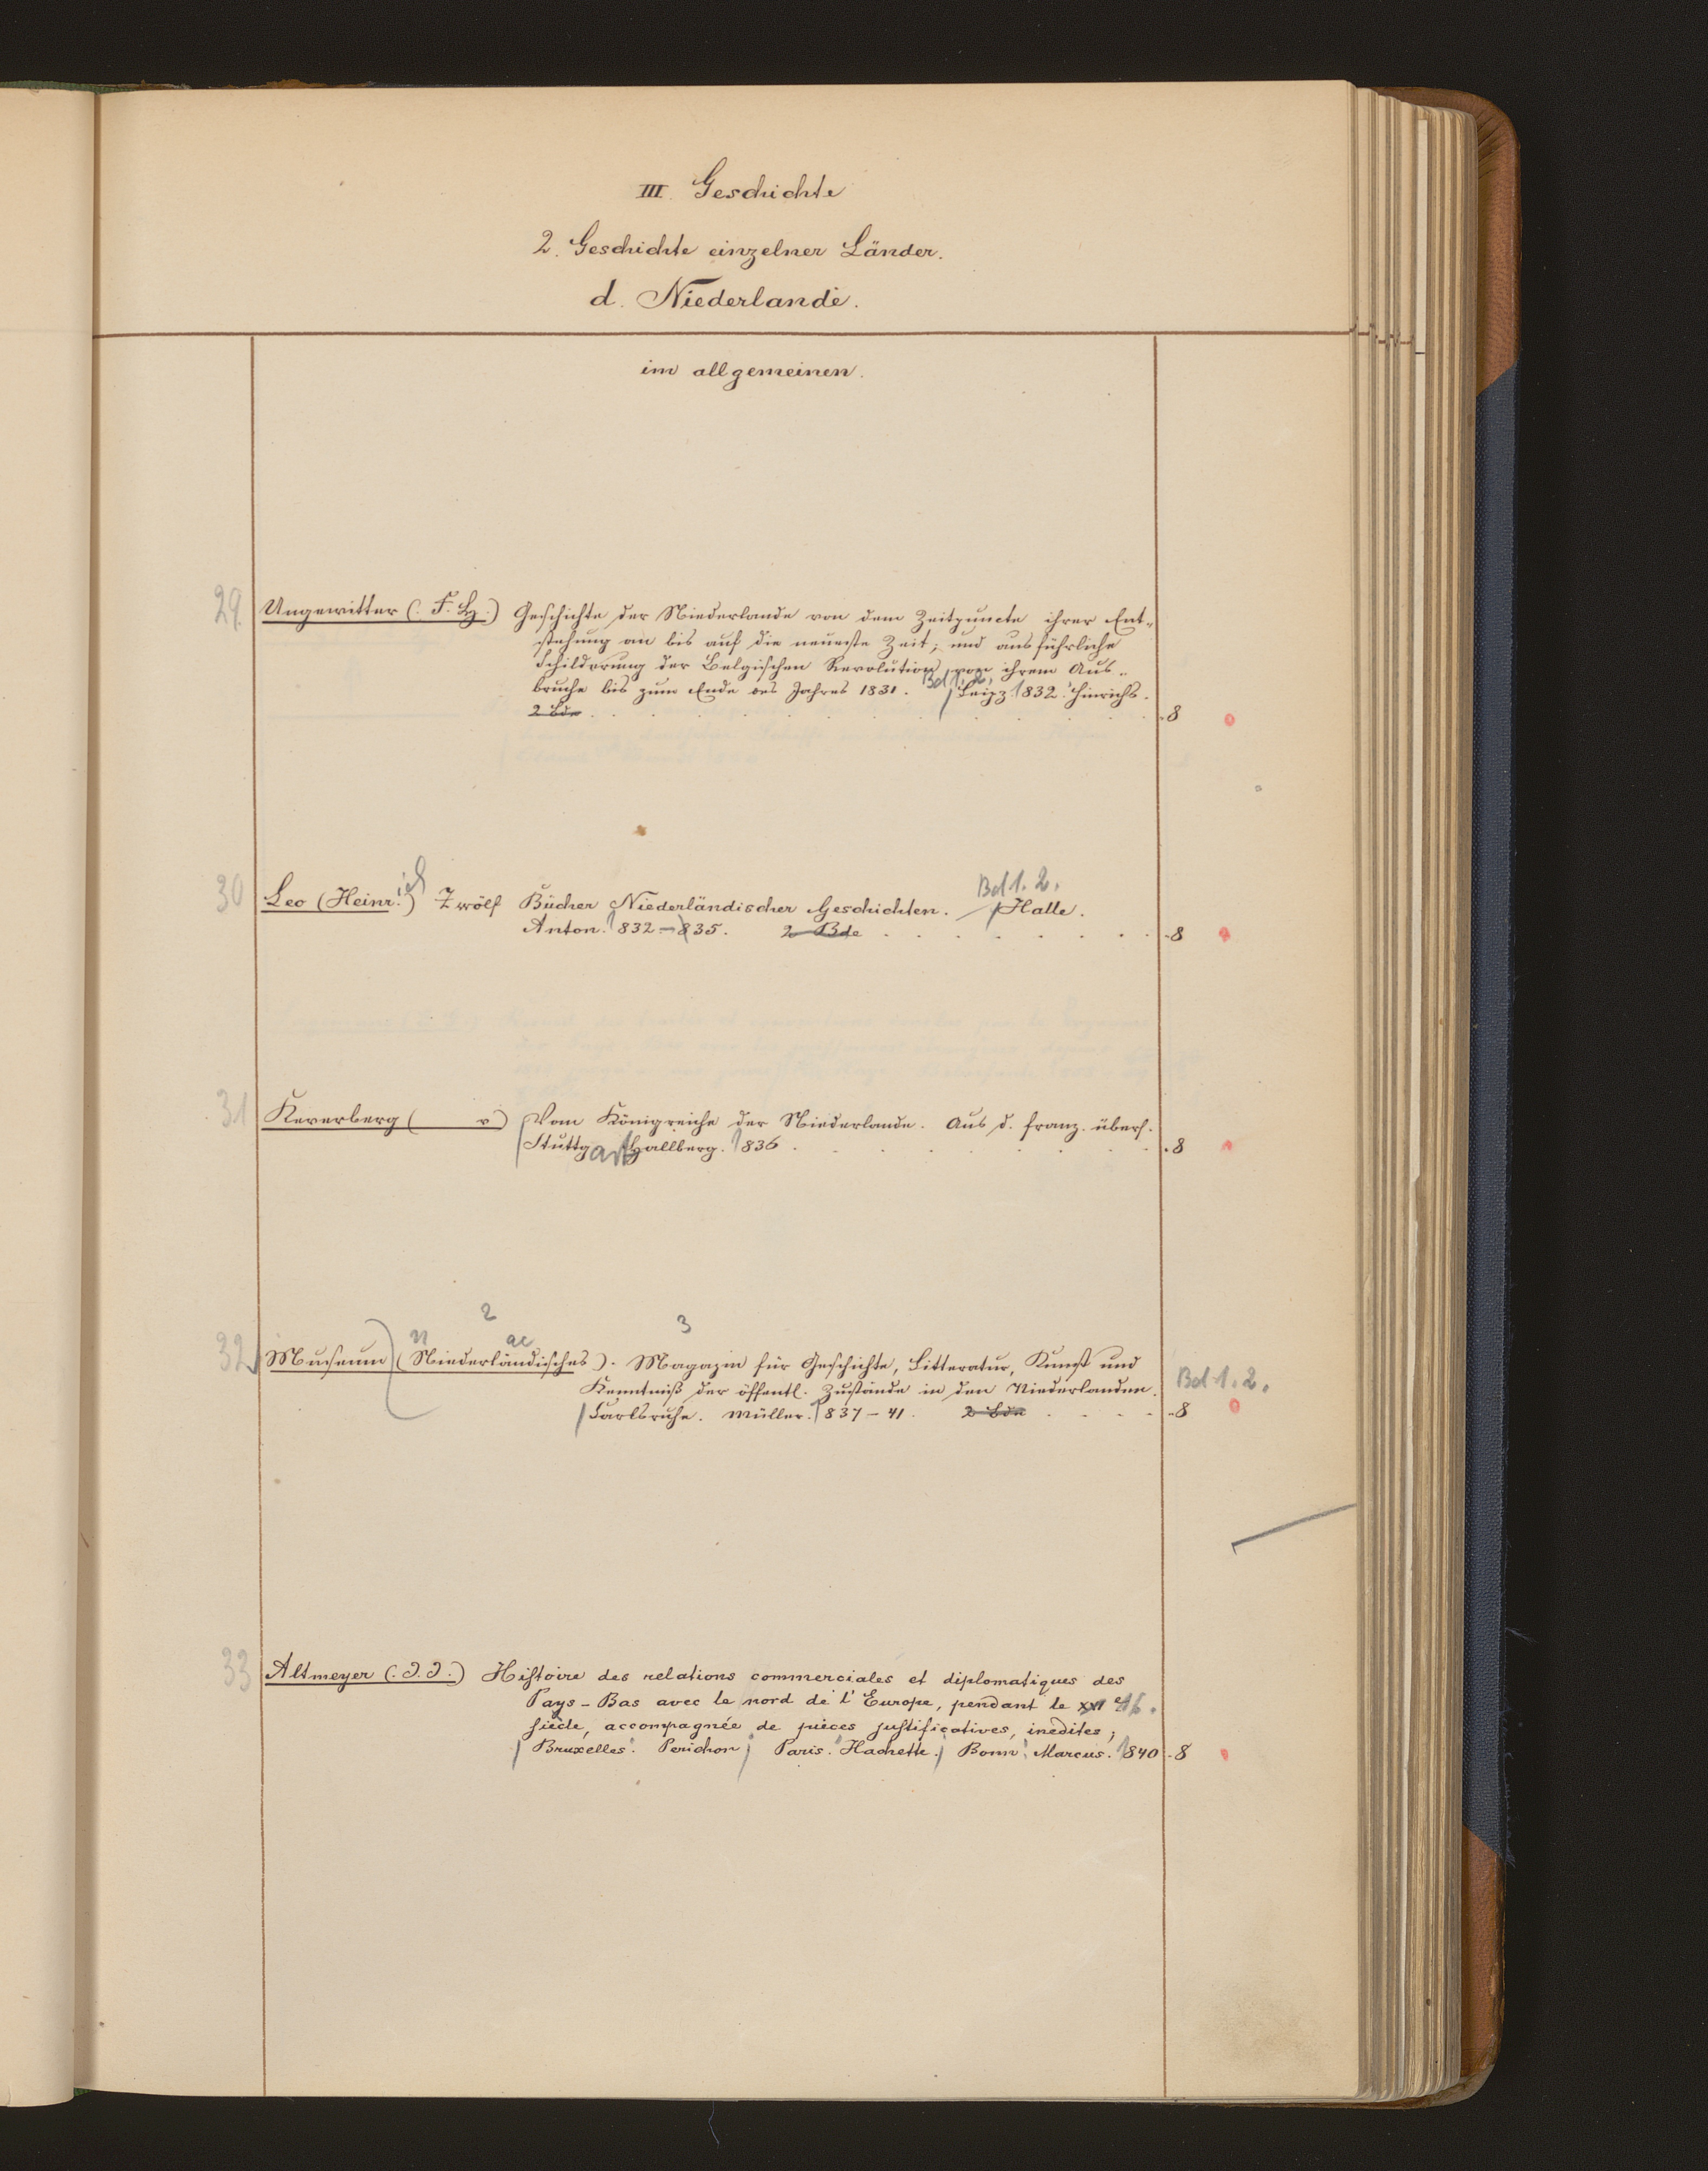 III. Geschichte
2. Geschichte einzelner Länder.
d. Niederlande.
im allgemeinen.
29. Ungewitter (F. H.) Geschichte der Niederlande von dem Zeitpuncte ihrer Ent-
stehung an bis auf die neueste Zeit; und ausführliche
Schilderung der Belgischen Revolution von ihrem Aus-
bruche bis zum Ende des Jahres 1831. Bd 1. 2. Leipz 832. Hinrichs.
2 Bde 8
30 Leo (Heinr.ich) Zwölf Bücher Niederländischer Geschichten. Bd 1. 2. Halle.
Anton. 1832-835. 2 Bde 8
31 Keverberg ( v) Vom Königreiche der Niederlande. Aus d. franz. übers.
Stuttgart Hallberg. 1836. 8
2 3
32 Museum (Niederländisches). Magazin für Geschichte, Litteratur, Kunst und
Kenntniß der öffentl. Zustände in den Niederlanden. Bd 1. 2.
Carlsruhe. Müller. 1837-41. 2 Bde 8
33 Altmeyer (J. J.) Histoire des relations commerciales et diplomatiques des
Pays-Bas avec le nord de l'Europe, pendant le XVI e 16.
siècle, accompagnée de pièces justificatives, inedites;
Bruxelles. Perichon Paris. Hachette. Bonn. Marcus. 1840 8